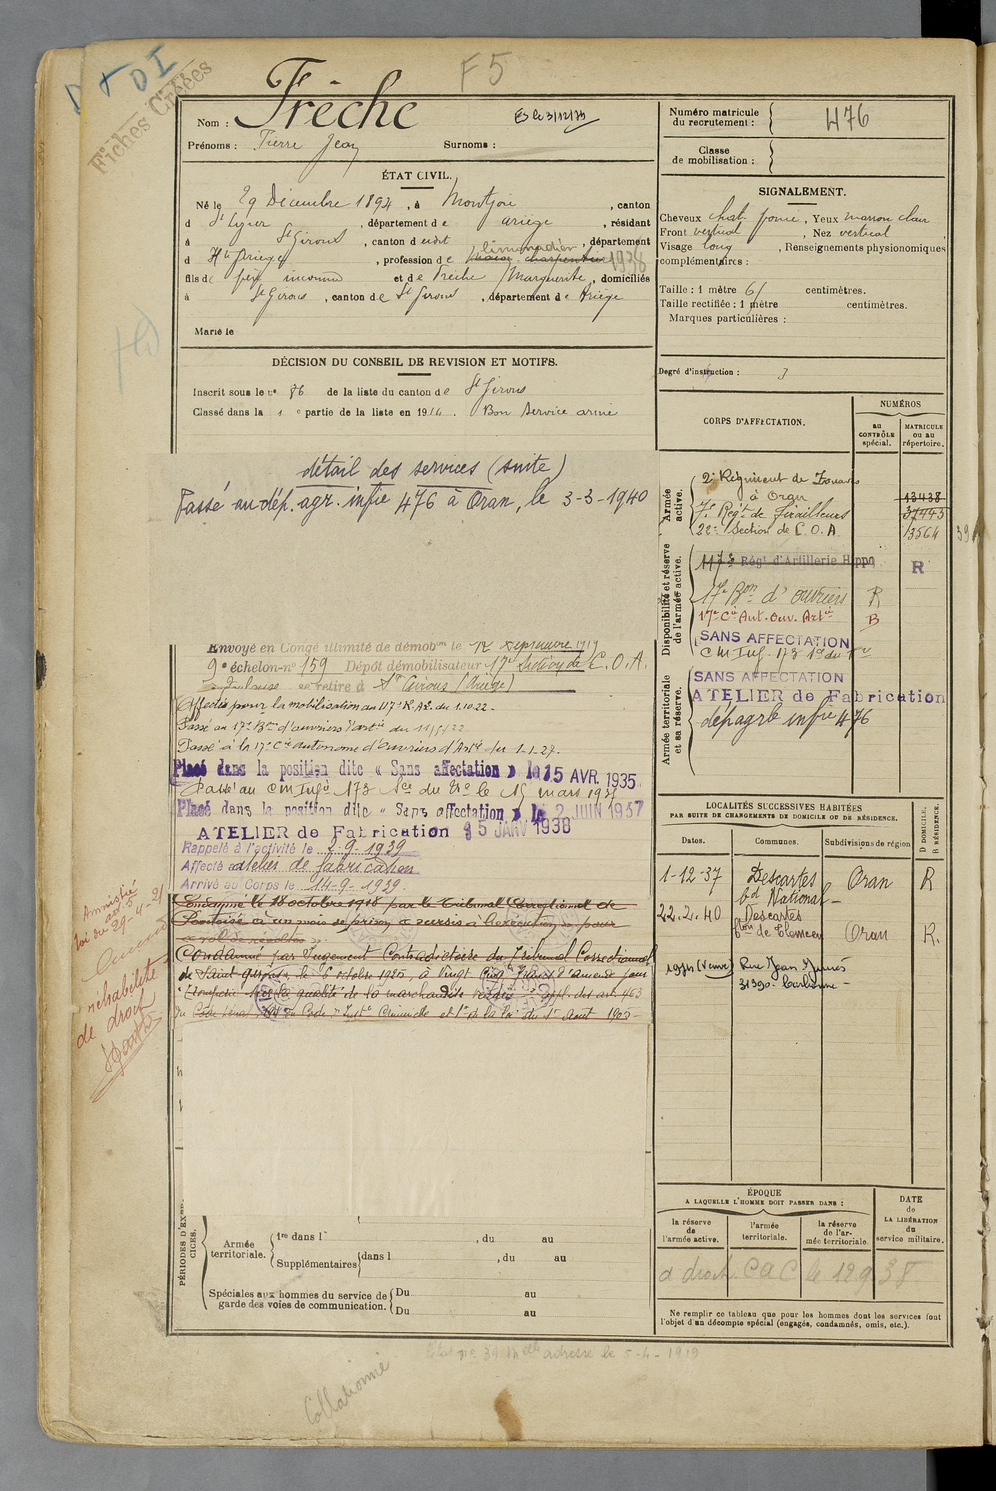 D + D I
Fiches Créées
F 5
Nom : Frèche
Es le 3/12/39
Prénoms : Pierre Jean Surnoms :
ÉTAT CIVIL.
Né le 29 Décembre 1894, à Montjoie, canton
d St Lizier, département de Ariège, résidant
à St Girons, canton dudit, département
d Ariège, profession de limonadier 1938
fils de père inconnu et de Frèche Marguerite, domiciliés
à St Girons, canton de St Girons, département de Ariège
Marié le
DÉCISION DU CONSEIL DE REVISION ET MOTIFS.
Inscrit sous le n° 86 de la liste du canton de St Girons
Classé dans la 1 e partie de la liste en 1914. Bon Service armé
détail des services (suite)
Passé au dép. agr. infie 476 à Oran, le 3-3-1940
Envoyé en Congé illimité de démobon le 12 Septembre 1919
9e échelon-n° 159 Dépôt démobilisateur 17e Section de C.O.A.
Toulouse se retire à St Girons (Ariège)
Affecté pour la mobilisation au 117e R.A.L. du 1.10.22-
Passé au 17e Bon d'ouvriers d'artie du 11/5/22
Passé à la 17e Cie autonome d'Ouvriers d'Artie du 1-1-27-
Placé dans la position dite « Sans affectation » le 15 AVR. 1935
Passé au C M Infie 173 le 15 mars 1937
Placé dans la position dite « Sans affectation » le 2 JUIN 1937
ATELIER de Fabrication 25 JANV 1938
Rappelé à l'activité le 2-9-1939
Affecté atelier de fabrication
Arrivé au Corps le 14-9-1939.
Condamné le 18 octobre 1918 par le Tribunal Correctionnel de
Pontoise à un mois de prison à sursis à l'exécution pour
vol de récoltes
Condamné par Jugement Contradictoire du Tribunal Correctionnel
de Saint Girons, le 6 octobre 1925, à vingt cinq francs d'amende pour
"tromperie sur la qualité de la marchandise vendue" appl. des art. 463
du Code pénal, du Code d'Inst° Criminelle et 1er de la loi du 1er Aout 1905-
Amnistié
loi du 29-4-21
réhabilité
de droit
PÉRIODES D'EXERCICES.
Armée territoriale.
1re dans l , du au
Supplémentaires dans l , du au
Spéciales aux hommes du service de garde des voies de communication.
Du au
Du au
adresse le 5-4-1919
Collationné
Numéro matricule du recrutement : 476
Classe de mobilisation :
SIGNALEMENT.
Cheveux chat. foncé, Yeux marron clair
Front vertical, Nez vertical
Visage long, Renseignements physionomiques
complémentaires :
Taille : 1 mètre 61 centimètres.
Taille rectifiée : 1 mètre centimètres.
Marques particulières :
Degré d'instruction : 3
CORPS D'AFFECTATION.
NUMÉROS
au CONTRÔLE spécial.
MATRICULE ou au répertoire.
Armée active.
2e Régiment de Zouaves
à Oran 13438
7e Régt de Tirailleurs 37445
22e Section de C.O.A. 13564
Disponibilité et réserve de l'armée active.
117e Régt d'Artillerie Hippo R
17e Bon d'ouvriers R
17e Cie Aut. Ouv. Artie B
SANS AFFECTATION
C M Inf. 173
Armée territoriale et sa réserve.
SANS AFFECTATION
ATELIER de Fabrication
dép agrle infie 476
LOCALITÉS SUCCESSIVES HABITÉES
PAR SUITE DE CHANGEMENTS DE DOMICILE OU DE RÉSIDENCE.
Dates. Communes. Subdivisions de région D DOMICILE. R RÉSIDENCE.
1-12-37 Descartes Oran R
bd National-
22.2.40 Descartes
de Tlemcen Oran R.
(Veuve) Rue Jean Jaurès
31390. Carbonne-
ÉPOQUE
A LAQUELLE L'HOMME DOIT PASSER DANS :
la réserve de l'armée active.
l'armée territoriale.
la réserve de l'armée territoriale.
DATE DE LA LIBÉRATION du service militaire.
a droit CaC le 12 9 38
Ne remplir ce tableau que pour les hommes dont les services font
l'objet d'un décompte spécial (engagés, condamnés, omis, etc.).